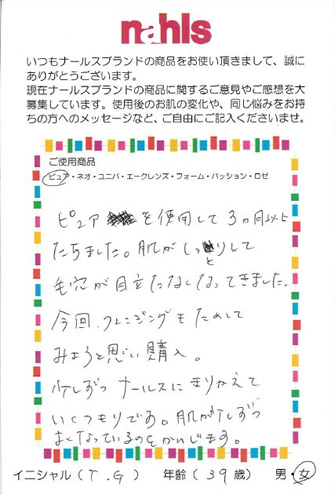 nahls
いつもナールスブランドの商品をお使い頂きまして、誠に
ありがとうございます。
現在ナールスブランドの商品に関するご意見やご感想を大
募集しています。使用後のお肌の変化や、同じ悩みをお持
ちの方へのメッセージなど、ご自由にご記入くださいませ。
ご使用商品
ピュア・ネオ・ユニバ・エークレンズ・フォーム・パッション・ロゼ
ピュア を使用して3ヵ月以上
たちました。肌がしっとりして
毛穴が目立たなくなってきました。
今回、クレンジングもためして
みようと思い購入。
少しずつナールスにきりかえて
いくつもりです。肌が少しずつ
よくなっているのをかんじます。
イニシャル(T.G) 年齢(39歳) 男・女